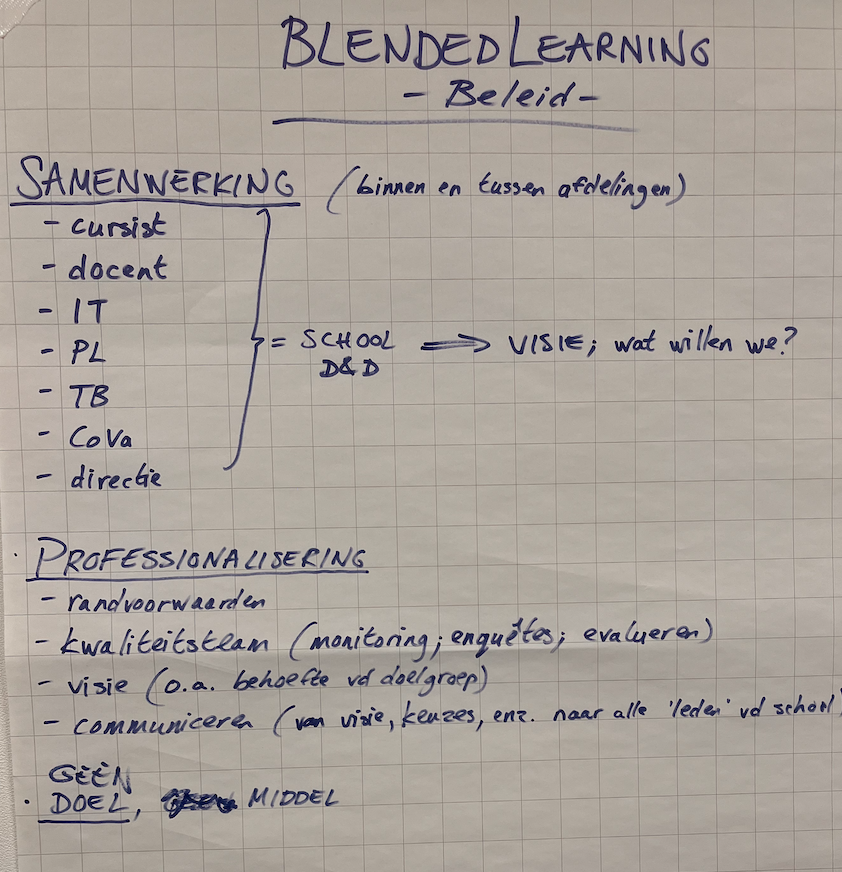 BLENDED LEARNING
- Beleid -
SAMENWERKING (binnen en tussen afdelingen)
- cursist
- docent
- IT
- PL
- TB
- CoVa
- directie
} = SCHOOL D&D ⟹ VISIE; wat willen we?
· PROFESSIONALISERING
- randvoorwaarden
- kwaliteitsteam (monitoring; enquêtes; evalueren)
- visie (o.a. behoefte vd doelgroep)
- communiceren (van visie, keuzes, enz. naar alle 'leden' vd school)
GEËN
· DOEL, MIDDEL